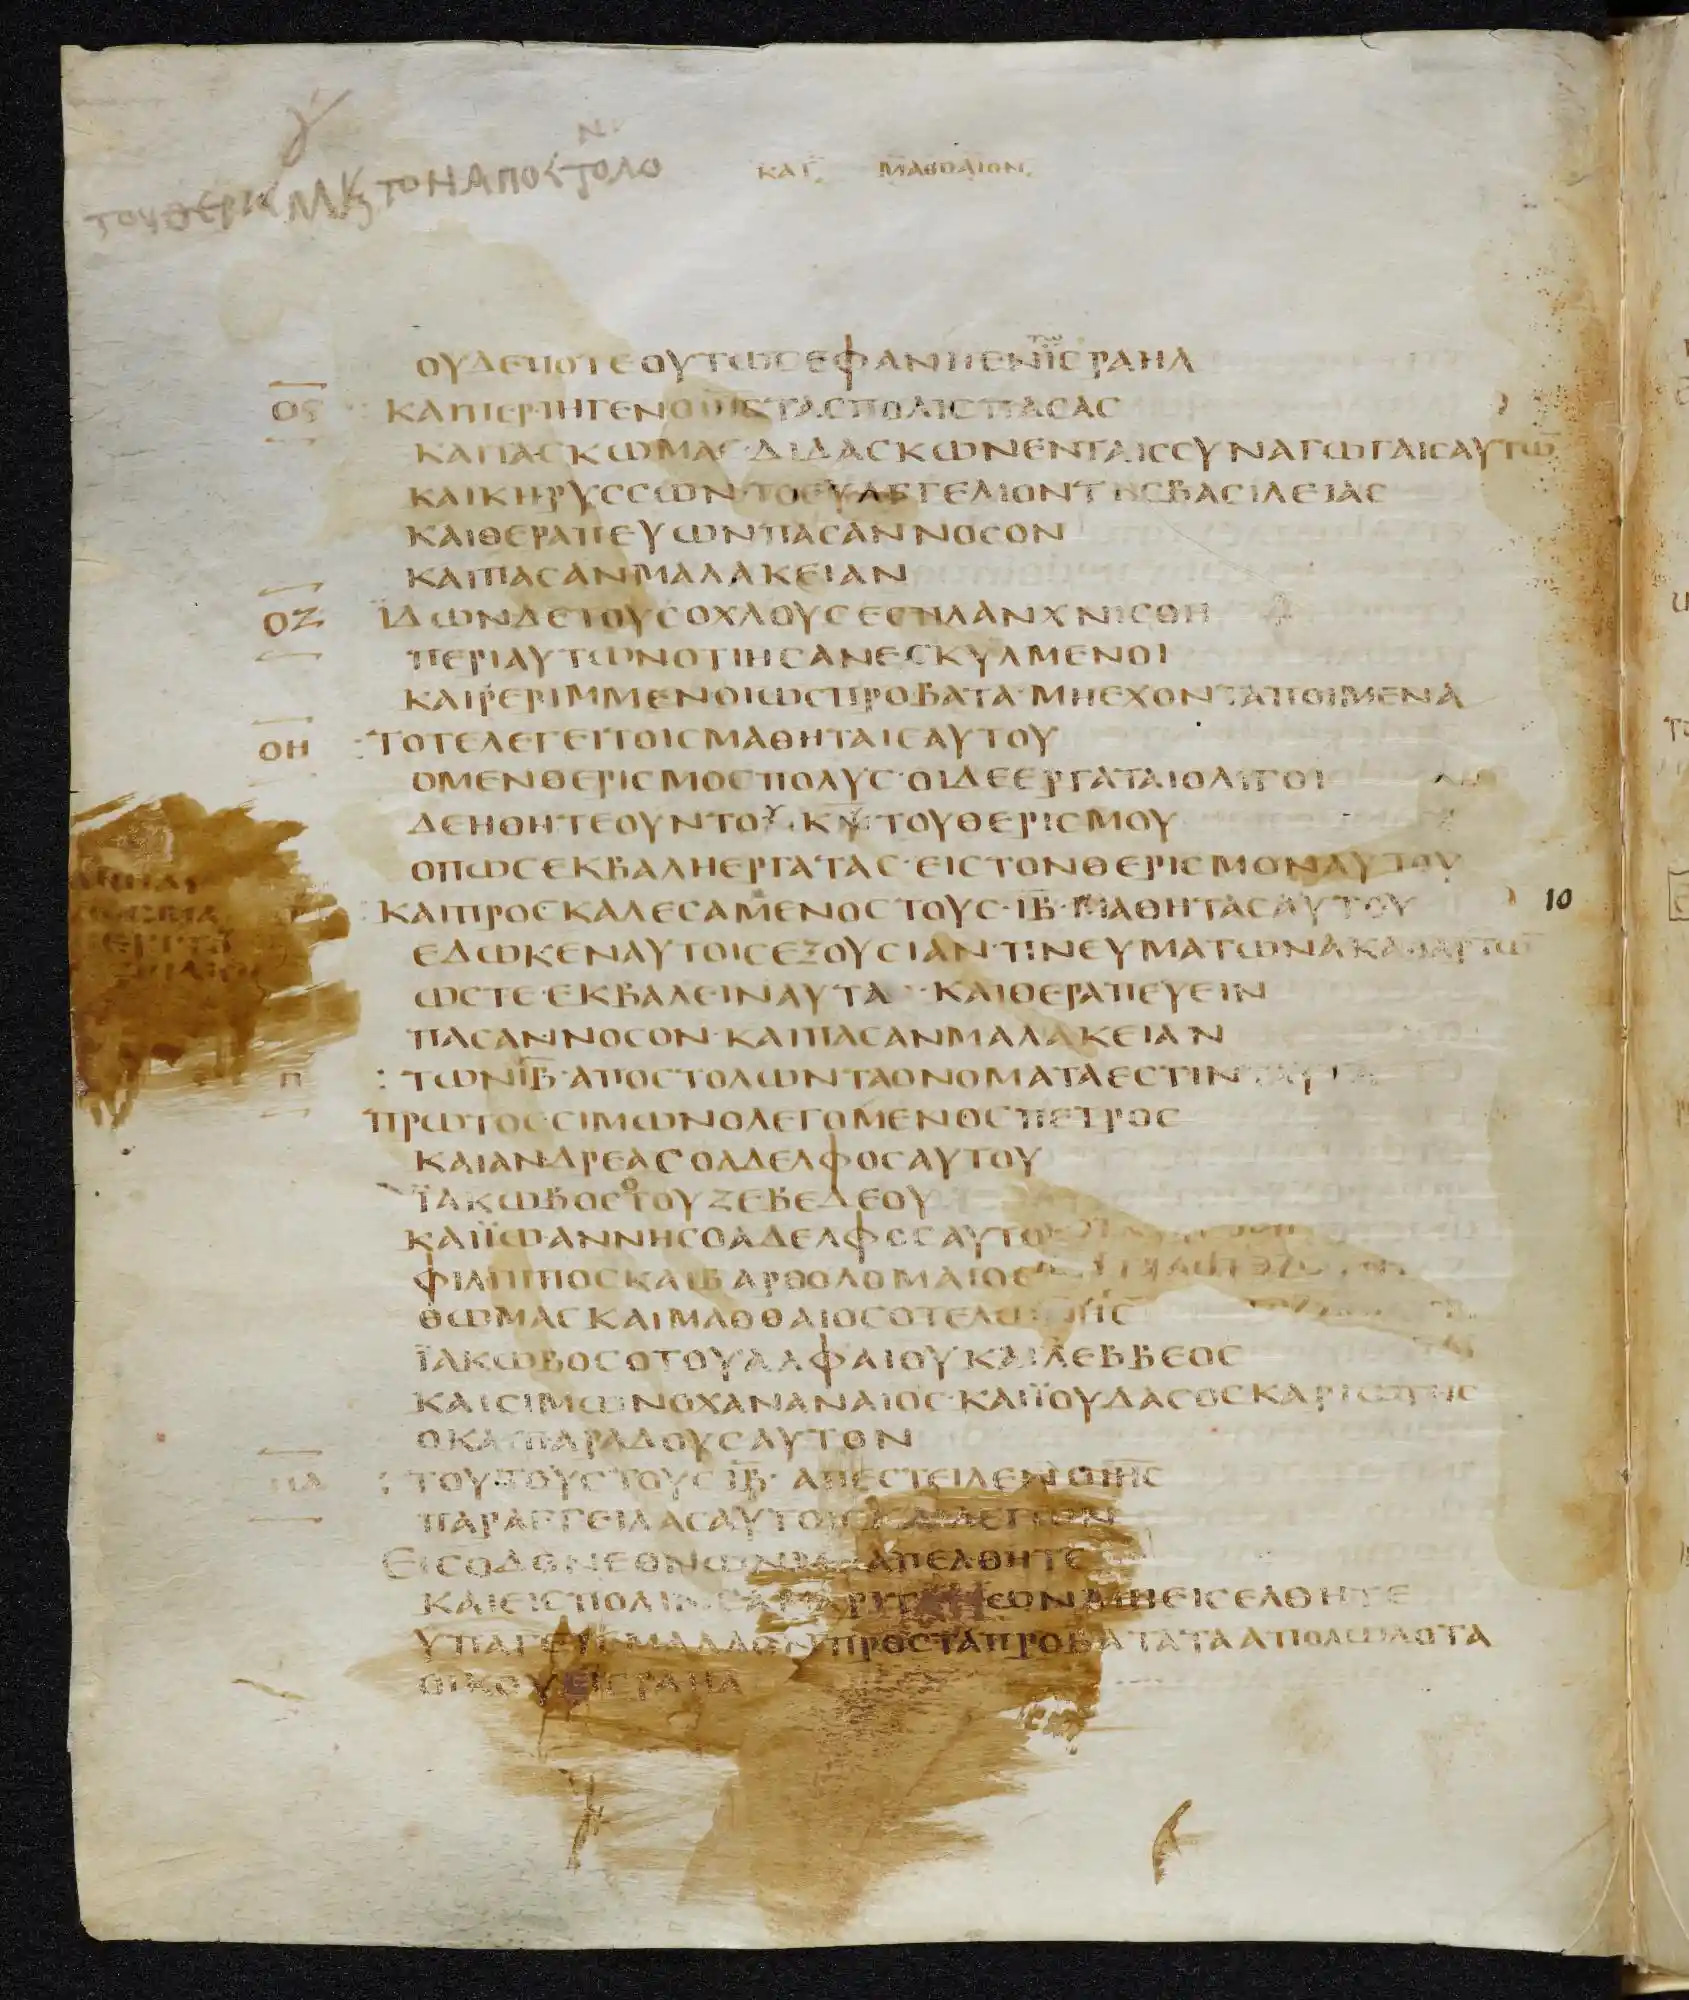 ΚΑΤ ΜΑΘΘΑΙΟΝ
ΤΟΝ ΑΠΟϹΤΟΛΟ
ΟΥΔΕΠΟΤΕΟΥΤΩϹΕΦΑΝΗΕΝΤΩΙϹΡΑΗΛ
Οϛ ΚΑΙΠΕΡΙΗΓΕΝΟΙΗϹΤΑϹΠΟΛΙϹΠΑϹΑϹ
ΚΑΙΤΑϹΚΩΜΑϹ·ΔΙΔΑϹΚΩΝΕΝΤΑΙϹϹΥΝΑΓΩΓΑΙϹΑΥΤΩ̅
ΚΑΙΚΗΡΥϹϹΩΝ·ΤΟΕΥΑΓΓΕΛΙΟΝΤΗϹΒΑϹΙΛΕΙΑϹ
ΚΑΙΘΕΡΑΠΕΥΩΝΠΑϹΑΝΝΟϹΟΝ
ΚΑΙΠΑϹΑΝΜΑΛΑΚΕΙΑΝ
ΟΖ ΪΔΩΝΔΕΤΟΥϹΟΧΛΟΥϹΕϹΠΛΑΝΧΝΙϹΘΗ
ΠΕΡΙΑΥΤΩΝΟΤΙΗϹΑΝΕϹΚΥΛΜΕΝΟΙ
ΚΑΙΡΕΡΙΜΜΕΝΟΙΩϹΠΡΟΒΑΤΑ·ΜΗΕΧΟΝΤΑΠΟΙΜΕΝΑ
ΟΗ ΤΟΤΕΛΕΓΕΙΤΟΙϹΜΑΘΗΤΑΙϹΑΥΤΟΥ
ΟΜΕΝΘΕΡΙϹΜΟϹΠΟΛΥϹ·ΟΙΔΕΕΡΓΑΤΑΙΟΛΙΓΟΙ
ΔΕΗΘΗΤΕΟΥΝΤΟΥΚ̅Υ̅ΤΟΥΘΕΡΙϹΜΟΥ
ΟΠΩϹΕΚΒΑΛΗΕΡΓΑΤΑϹ·ΕΙϹΤΟΝΘΕΡΙϹΜΟΝΑΥΤΟΥ
ΚΑΙΠΡΟϹΚΑΛΕϹΑΜΕΝΟϹΤΟΥϹ·Ι̅Β̅·ΜΑΘΗΤΑϹΑΥΤΟΥ 10
ΕΔΩΚΕΝΑΥΤΟΙϹΕΞΟΥϹΙΑΝ·ΠΝΕΥΜΑΤΩΝΑΚΑΘΑΡΤΩ̅
ΩϹΤΕ·ΕΚΒΑΛΕΙΝΑΥΤΑ·ΚΑΙΘΕΡΑΠΕΥΕΙΝ
ΠΑϹΑΝΝΟϹΟΝ·ΚΑΙΠΑϹΑΝΜΑΛΑΚΕΙΑΝ
Π ΤΩΝΙ̅Β̅·ΑΠΟϹΤΟΛΩΝΤΑΟΝΟΜΑΤΑΕϹΤΙΝ
ΠΡΩΤΟϹ·ϹΙΜΩΝΟΛΕΓΟΜΕΝΟϹΠΕΤΡΟϹ
ΚΑΙΑΝΔΡΕΑϹΟΑΔΕΛΦΟϹΑΥΤΟΥ
ΪΑΚΩΒΟϹΟΤΟΥΖΕΒΕΔΕΟΥ
ΚΑΙΪΩΑΝΝΗϹΟΑΔΕΛΦΟϹΑΥΤΟΥ
ΦΙΛΙΠΠΟϹΚΑΙΒΑΡΘΟΛΟΜΑΙΟϹ
ΘΩΜΑϹΚΑΙΜΑΘΘΑΙΟϹΟΤΕΛΩΝΗϹ
ΪΑΚΩΒΟϹΟΤΟΥΑΛΦΑΙΟΥΚΑΙΛΕΒΒΕΟϹ
ΚΑΙϹΙΜΩΝΟΧΑΝΑΝΑΙΟϹ·ΚΑΙΪΟΥΔΑϹΟϹΚΑΡΙΩΤΗϹ
ΟΚΑΙΠΑΡΑΔΟΥϹΑΥΤΟΝ
ΠΑ ΤΟΥΤΟΥϹΤΟΥϹΙ̅Β̅·ΑΠΕϹΤΕΙΛΕΝΟΙΗϹ
ΠΑΡΑΓΓΕΙΛΑϹΑΥΤΟΙϹΚΑΙΛΕΓΩΝ
ΕΙϹΟΔΟΝΕΘΝΩΝΜΗΑΠΕΛΘΗΤΕ
ΚΑΙΕΙϹΠΟΛΙΝϹΑΜΑΡΙΤΑΝΩΝΜΗΕΙϹΕΛΘΗΤΕ
ΥΠΑΓΕΤΕΜΑΛΛΟΝΠΡΟϹΤΑΠΡΟΒΑΤΑΤΑΑΠΟΛΩΛΟΤΑ
ΟΙΚΟΥΕΙϹΡΑΗΛ